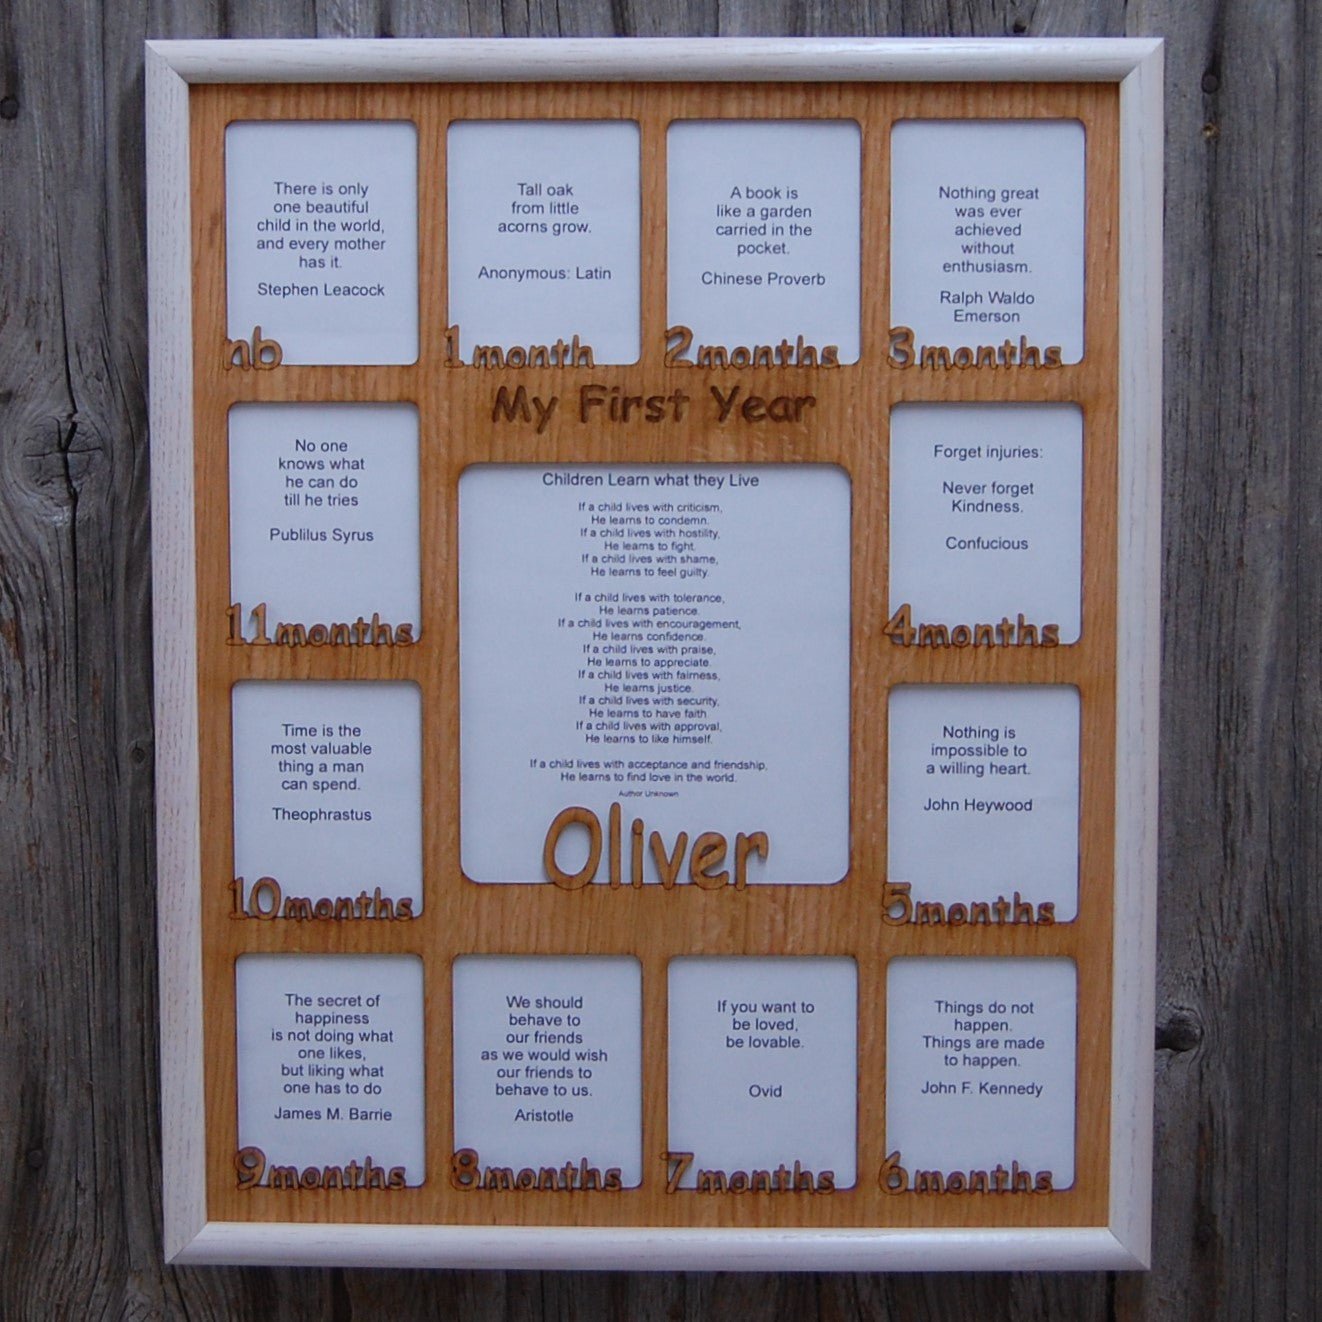 There is only
one beautiful
child in the world,
and every mother
has it.
Stephen Leacock
nb
Tall oak
from little
acorns grow.
Anonymous: Latin
1month
A book is
like a garden
carried in the
pocket.
Chinese Proverb
2months
Nothing great
was ever
achieved
without
enthusiasm.
Ralph Waldo
Emerson
3months
My First Year
No one
knows what
he can do
till he tries
Publilus Syrus
11months
Children Learn what they Live
If a child lives with criticism,
He learns to condemn.
If a child lives with hostility,
He learns to fight.
If a child lives with shame,
He learns to feel guilty.
If a child lives with tolerance,
He learns patience.
If a child lives with encouragement,
He learns confidence.
If a child lives with praise,
He learns to appreciate.
If a child lives with fairness,
He learns justice.
If a child lives with security,
He learns to have faith
If a child lives with approval,
He learns to like himself.
If a child lives with acceptance and friendship,
He learns to find love in the world.
Author Unknown
Oliver
Forget injuries:
Never forget
Kindness.
Confucious
4months
Time is the
most valuable
thing a man
can spend.
Theophrastus
10months
Nothing is
impossible to
a willing heart.
John Heywood
5months
The secret of
happiness
is not doing what
one likes,
but liking what
one has to do
James M. Barrie
9months
We should
behave to
our friends
as we would wish
our friends to
behave to us.
Aristotle
8months
If you want to
be loved,
be lovable.
Ovid
7months
Things do not
happen.
Things are made
to happen.
John F. Kennedy
6months